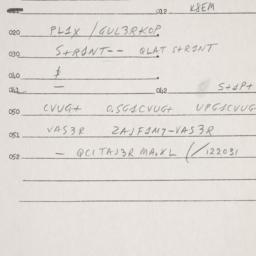 012 K8EM
020 PL1X / GUL3RKOP
030 S+R1NT-- QLAT S+R1NT
040 $
041 — 042 S+1P+
050 CVUG+ 0.SG1CVUG+ UPG1CVUG
051 VAS3R ZAJF1M7-VAS3R
052 — QCITAJ3R MA.XL (/122031